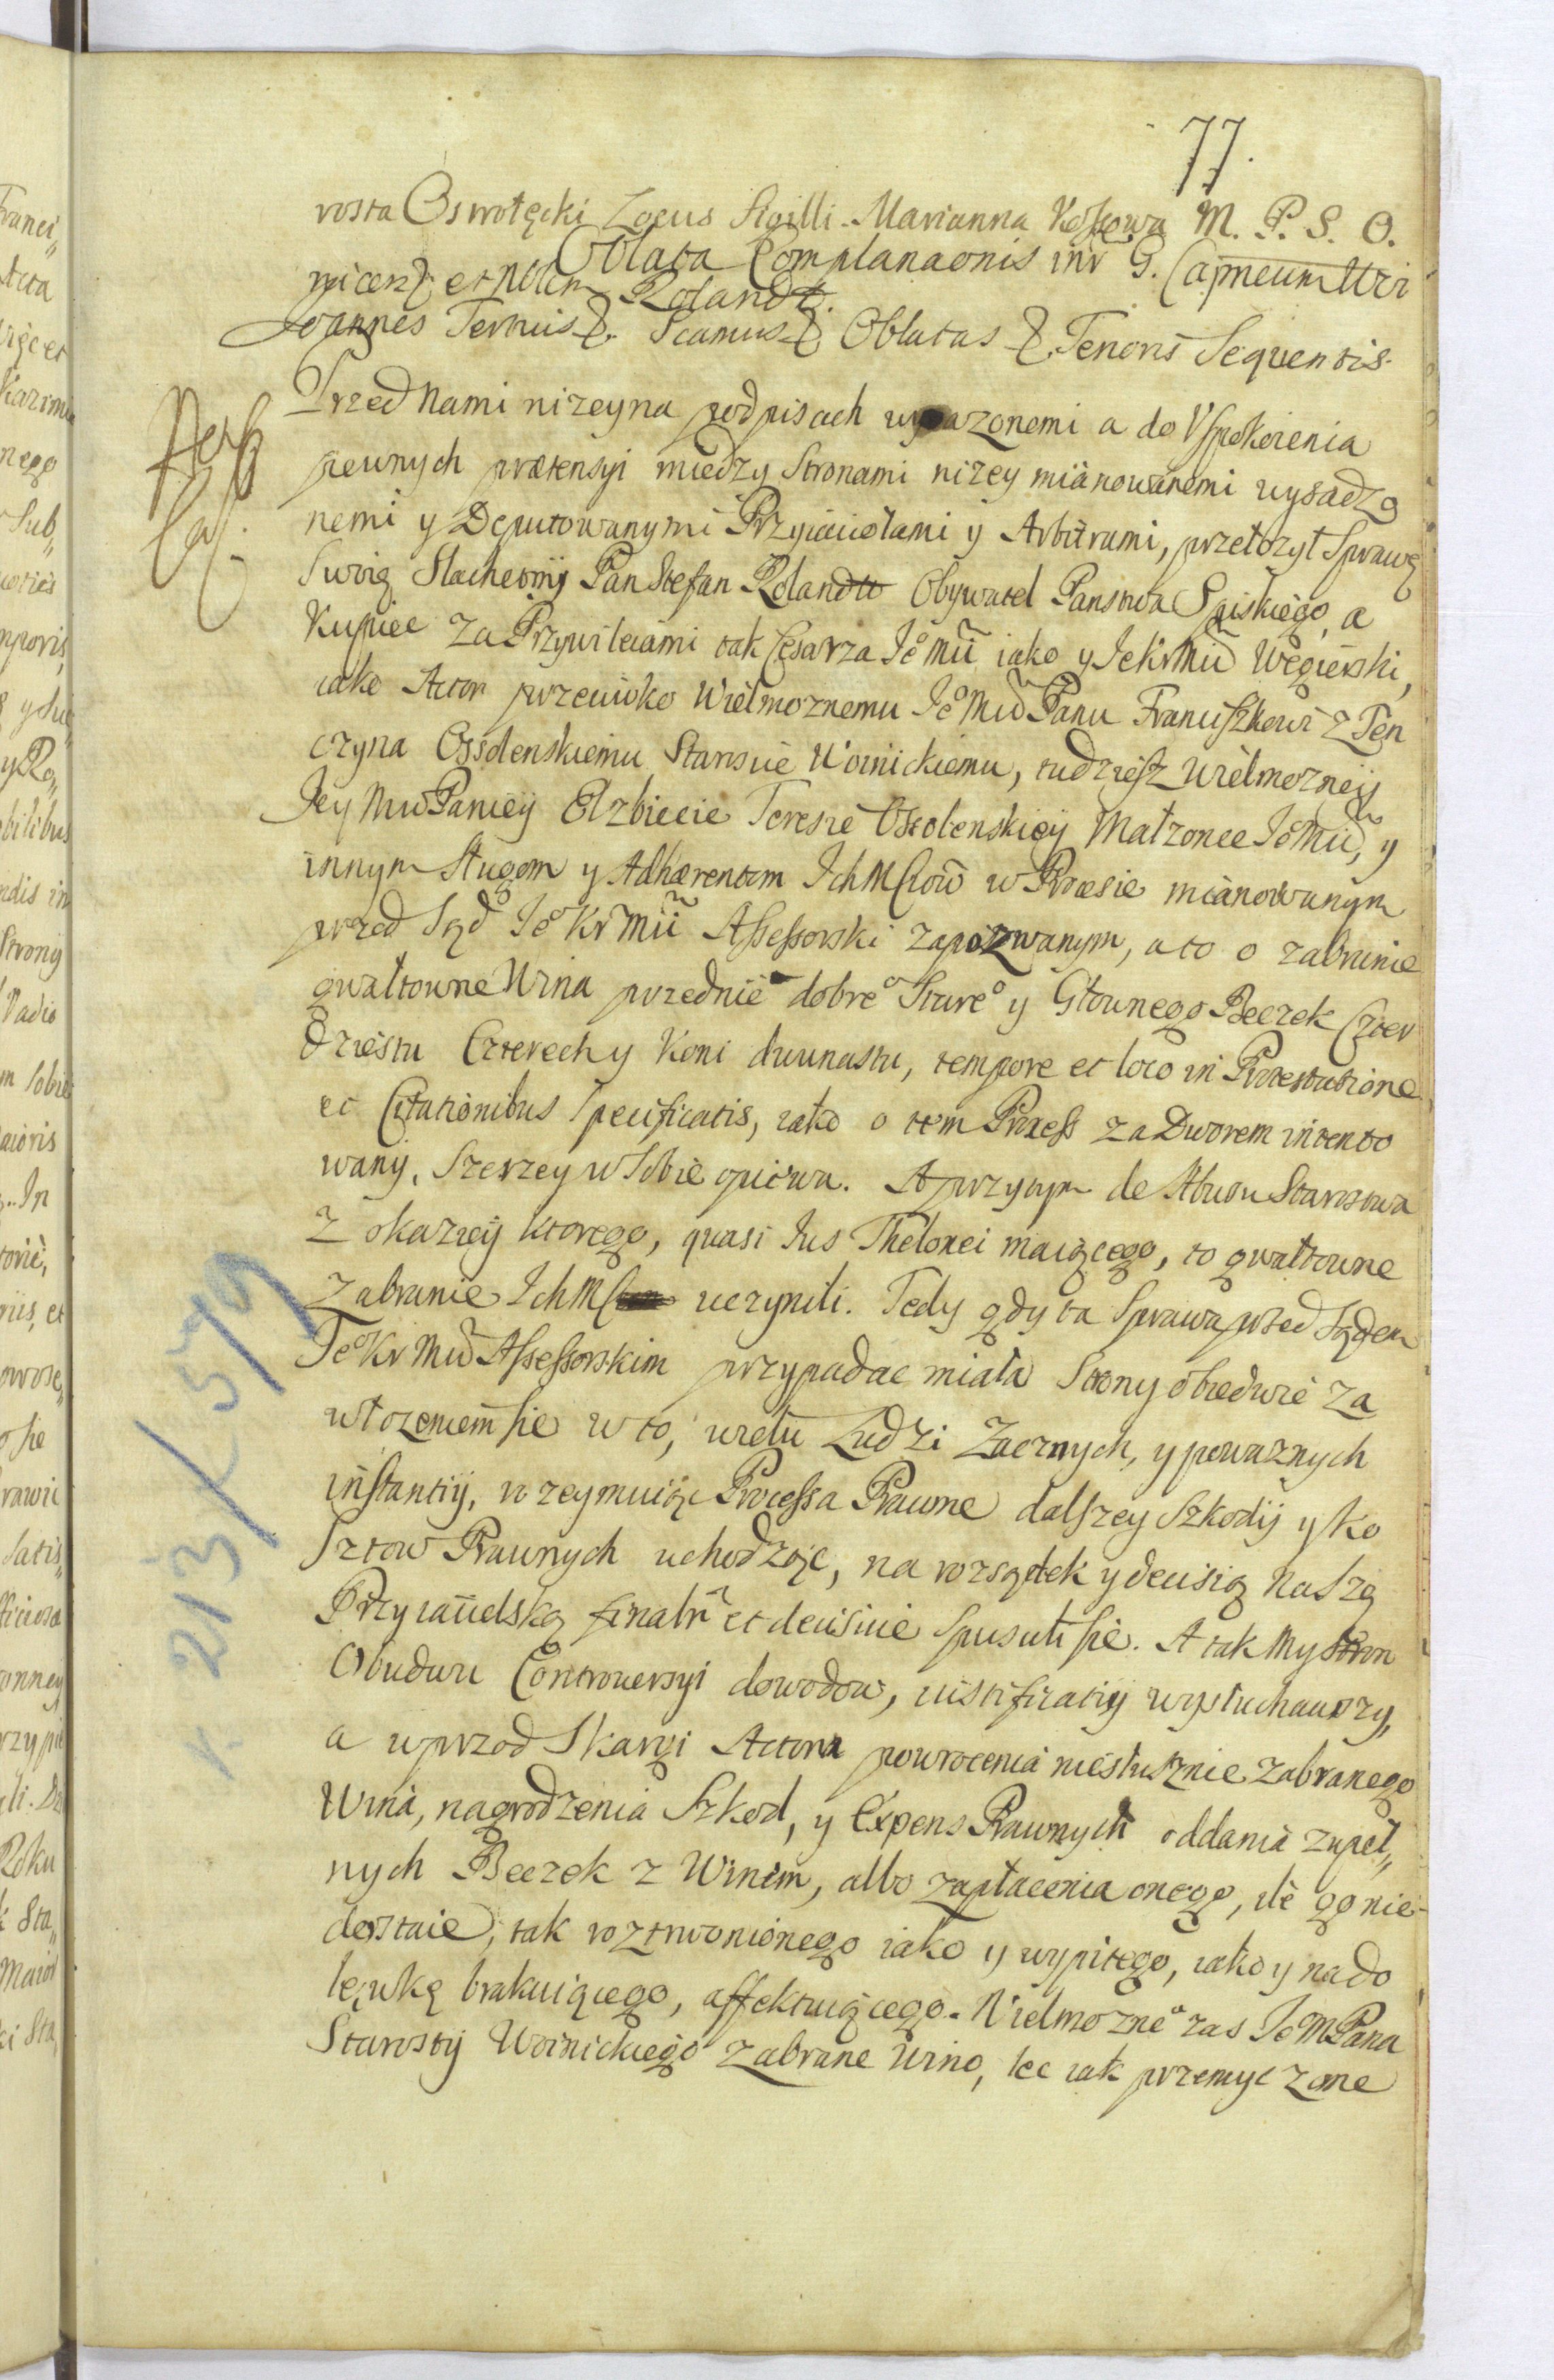 77.
rosta Ostrołęcki Locus Sigilli. Marianna Kossowa M. P. S. O.
Oblata Complanaonis inr G. Capneum Woi
nicen& et Nblm Rolandt.
Joannes Tertius &. Scamus & Oblatas & Tenoris Sequentis.
Przed Nami nizey na podpisach wyrazonemi a do Uspokoienia
pewnych prætensyi miedzy Stronami nizey mianowanemi wysadzo
nemi y Deputowanymi Przyiaciołami y Arbitrami, przełozył Sprawę
Swoię Slachetnÿ Pan Stefan Rolandt Obywatel Panstwa Spiskiego, a
Kupiec za Przywileiami tak Cesarza Ie° Mci iako y Ie Kr Mci Węgierski,
iako Actor przeciwko Wielmoznemu Ie° Mci Panu Franciszkowi z Ten
czyna Ossolenskiemu Staroscie Woinickiemu, tudziesz Wielmozneÿ
Jey Mci Panieÿ Elzbiecie Teresie Ossolenskieÿ Małzonce Ie° Mci, y
innym Sługom y Adhærentom Ich Mciow w Procesie mianowanym
przed Sąd Ie° Kr Mci Assessorski zapozwanym, a to o zabranie
gwałtowne Wina przednie° dobre° Stare° y Głownego Beczek Czter
dziestu Czterech y Koni dwunastu, tempore et loco in Protestatione
et Citationibus specificatis, iako o tem Process za Dworem intento
wanÿ, szerzey w Sobie opiewa. A przytym de Abusu Starostwa
z okazyeÿ ktorego, quasi Ius Thelonei maiącego, to gwałtowne
Zabranie Ich M uczynili. Tedy gdy ta Sprawa przed Sądem
Ie° Kr Mci Assessorskim przypadac miała Strony obiedwie za
włozeniem sie w to, wielu Ludzi Zacznych, y powaznych
instantiÿ, wzeymuiąc Processa Prawne dalszey Szkodÿ y Ko
sztow Prawnych uchodząc, na rozsądek y decisią Naszę
Przyiacielską finalr et decisive spuscili sie. A tak My Stron
Obudwu Controversyi dowodow, iustificatiÿ wysłuchawszy,
a wprzod Skargi Actora powrocenia niesłusznie zabranego
Wina, nagrodzenia Szkod, y Expens Prawnych oddania zupeł„
nych Beczek z Winem, albo zapłacenia onego, ile go nie
dostaie, tak roztrwonionego iako y wypitego, iako y na do
lewkę brakuiącego, affektuiącego. Wielmozne° zas Ie M Pana
Starostÿ Woinickiego zabrane Wino, lec iak przemyczone
k. 213/579